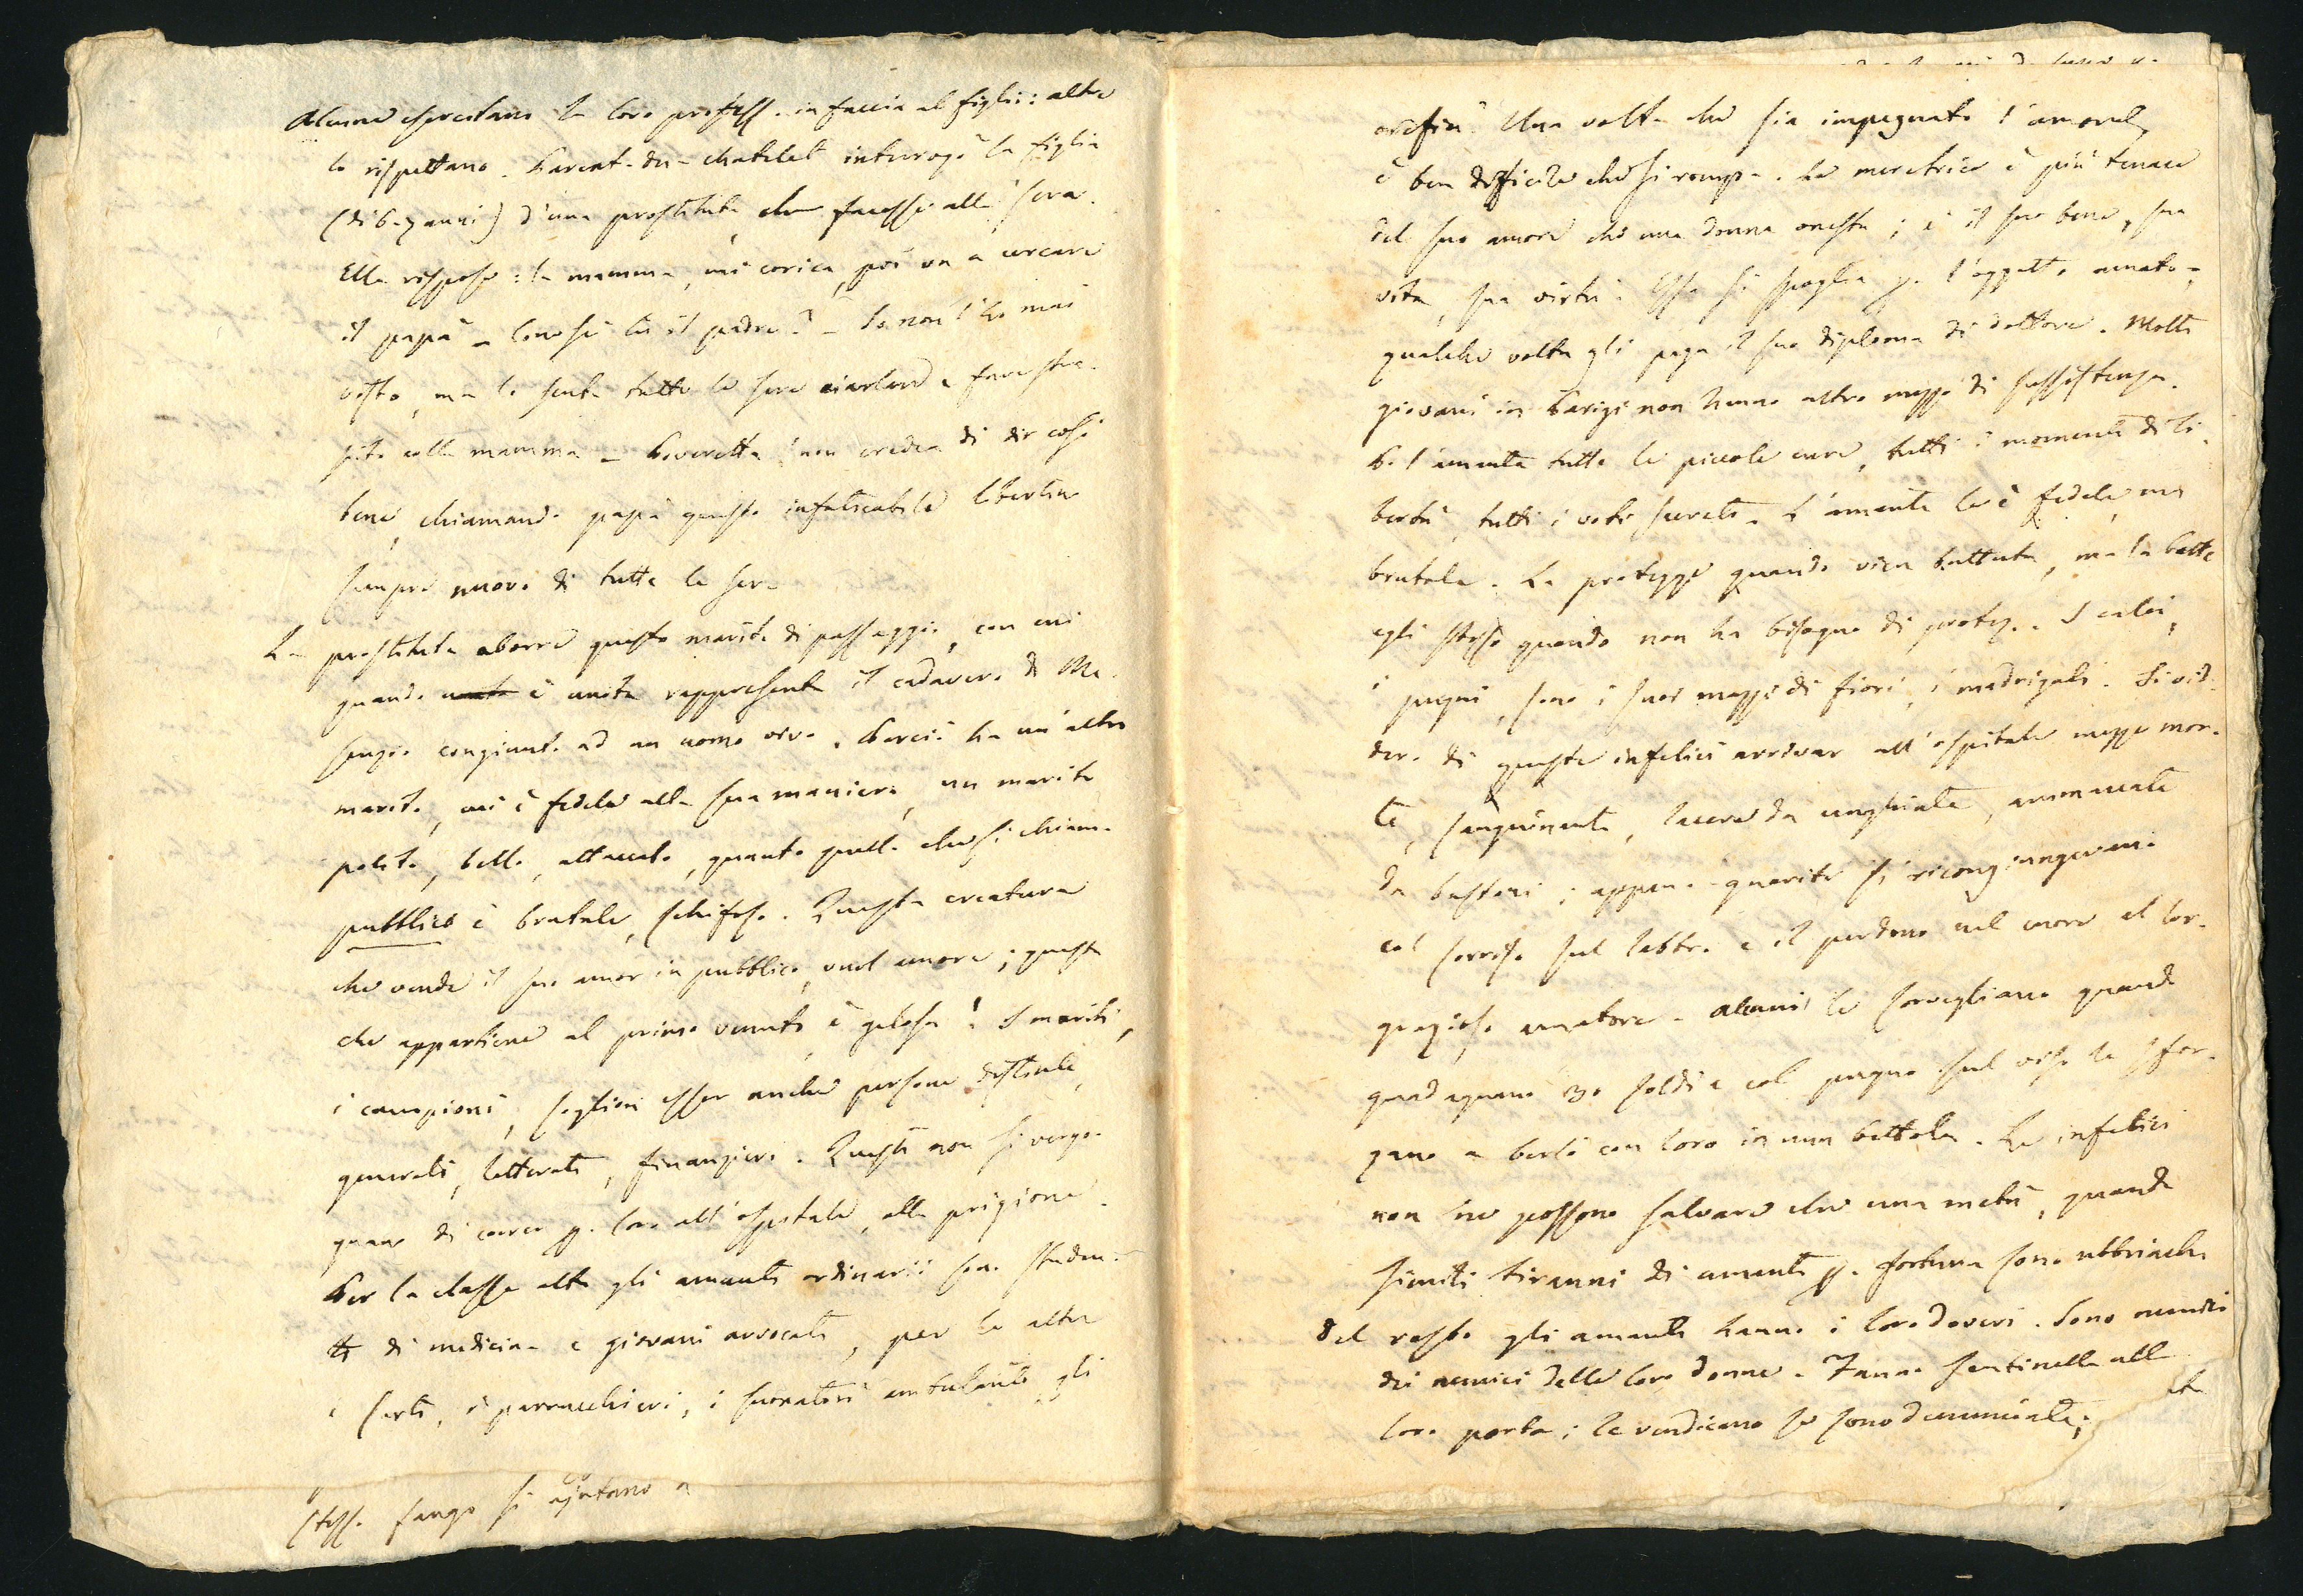 Alcune esercitano la loro profess. in faccia al figlio: altre
lo rispettano. Parent-du-chatelet interrogò la figlia
(di 6-7 anni) d'una prostituta che facesse alla sera.
Ella rispose: la mamma, mi corica, poi va a cercare
il papà - Conosci tu il padre? - Io non l'ho mai
visto, ma lo sento tutte le sere ciarlare e fare stre-
pito colla mamma - Poveretta! non credea di dir così
bene, chiamando papà questo infaticabile libertino
sempre nuovo di tutte le sere
La prostituta aborre questo marito di passaggio, con cui
quando è unita rappresenta il cadavero di Me-
senzio congiunto ad un uomo vivo. Perciò ha un altro
marito, cui è fedele alla sua maniera, un marito
polito, bello, attaccato, quanto quello che si chiama
pubblico è brutale, schifoso. Questa creatura
che vende il suo amor in pubblico, vuol amore; questa
che appartiene al primo venuto, è gelosa! I mariti,
i campioni, soglion esser anche persone distinte,
generali, letterati, finanzieri. Questi non si vergo-
gnano di correr p. loro all'ospitale, alla prigione.
Per la classe alta gli amanti ordinarii son studen-
ti di medicina e giovani avvocati, per le altre
i sarti, i parrucchieri, i suonatori ambulanti, gli
stess. fango si ajutano a
orefici. Una volta che sia impegnato l'amore,
è ben difficile che si rompa. La meretrice è più tenace
del suo amore che una donna onesta; è il suo bene, sua
vita, sua virtù. Essa si spoglia p. l'oggetto amato -
qualche volta gli paga il suo diploma di dottore. Molti
giovani in Parigi non hanno altro mezzo di sussistenza.
P. l'amante tutte le piccole cure, tutti i momenti di li-
bertà, tutti i voti secreti. L'amante le è fedele, ma
brutale. La protegge quando vien battuta, ma la batte
egli stesso quando non ha bisogno di protez. I calci,
i pugni, sono i suoi mazzi di fiori, i madrigali. Si vid-
dero di queste infelici arrivar all'ospitale mezze mor-
te, sanguinanti, lacere da unghiate, ammaccate
da bastoni; appena guarite si ricongiungevano
col sorriso sul labbro e il perdono nel cuore al lor
grazioso amatore - Alcuni le sorvegliano quando
guadagnano 30 soldi e col pugno sul viso le sfor-
zano a berli con loro in una bettola. Le infelici
non ne possono salvare che una metà, quando
simili tiranni di amanti p. fortuna sono ubbriachi
Del resto gli amanti hanno i loro doveri. Sono nemici
dei nemici delle loro donne. Fanno sentinella alla
loro porta; le vendicano se sono denunciate;